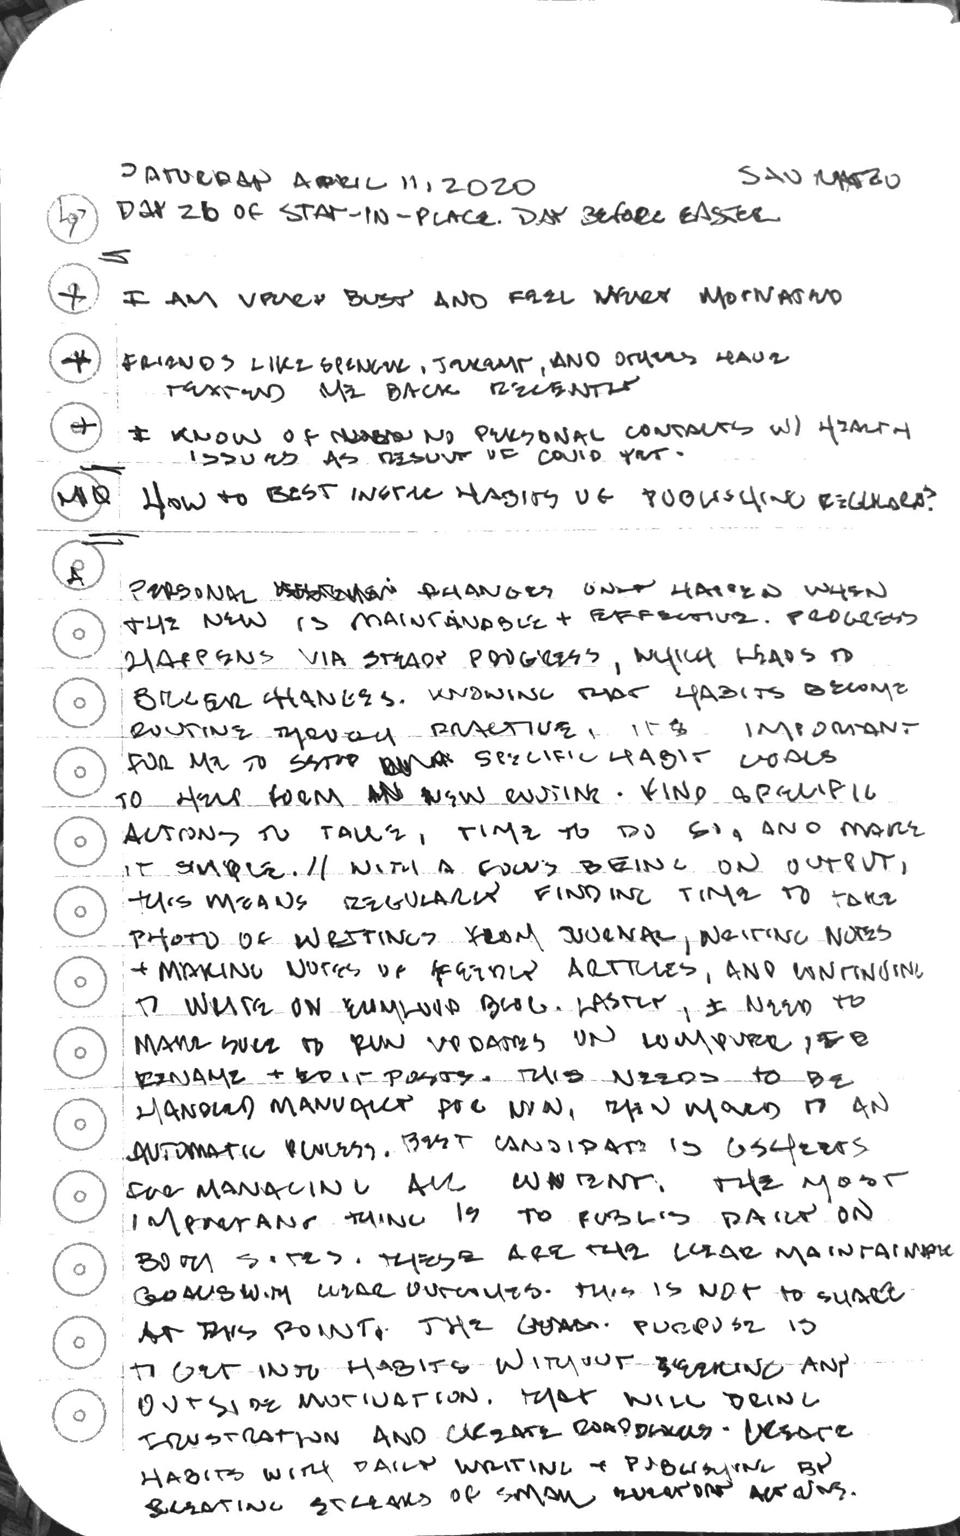 SATURDAY APRIL 11, 2020 SAN MATEO
DAY 26 OF STAY-IN-PLACE. DAY BEFORE EASTER
+ I AM VERY BUSY AND FEEL VERY MOTIVATED
+ FRIENDS LIKE SPENCER, JEREMY, AND OTHERS HAVE
TEXTED ME BACK RECENTLY
+ I KNOW OF NO PERSONAL CONTACTS W/ HEALTH
ISSUES AS RESULT OF COVID YET.
MIQ HOW TO BEST INSTILL HABITS OF PUBLISHING REGULARLY?
A
PERSONAL CHANGES ONLY HAPPEN WHEN
THE NEW IS MAINTAINABLE + EFFECTIVE. PROGRESS
HAPPENS VIA STEADY PROGRESS, WHICH LEADS TO
BIGGER CHANGES. KNOWING THAT HABITS BECOME
ROUTINE THROUGH PRACTICE, IT'S IMPORTANT
FOR ME TO SETUP SPECIFIC HABIT GOALS
TO HELP FORM NEW ROUTINE. FIND SPECIFIC
ACTIONS TO TAKE, TIME TO DO SO, AND MAKE
IT SIMPLE. // WITH A FOCUS BEING ON OUTPUT,
THIS MEANS REGULARLY FINDING TIME TO TAKE
PHOTO OF WRITINGS FROM JOURNAL, WRITING NOTES
+ MAKING NOTES OF FEEDLY ARTICLES, AND CONTINUING
TO WRITE ON BLOG. LASTLY, I NEED TO
MAKE SURE TO RUN UPDATES ON COMPUTER, IE
RENAME + EDIT POSTS. THIS NEEDS TO BE
HANDLED MANUALLY FOR NOW, THEN MOVED TO AN
AUTOMATIC PROCESS. BEST CANDIDATE IS GSHEETS
FOR MANAGING ALL CONTENT. THE MOST
IMPORTANT THING IS TO PUBLISH DAILY ON
BOTH SITES. THESE ARE THE CLEAR MAINTAINABLE
GOALS WITH CLEAR OUTCOMES. THIS IS NOT TO SHARE
AT THIS POINT. THE PURPOSE IS
TO GET INTO HABITS WITHOUT SEEKING ANY
OUTSIDE MOTIVATION. THAT WILL BRING
FRUSTRATION AND CREATE ROADBLOCKS. CREATE
HABITS WITH DAILY WRITING + PUBLISHING BY
CREATING STREAKS OF SMALL EVERYDAY ACTIONS.